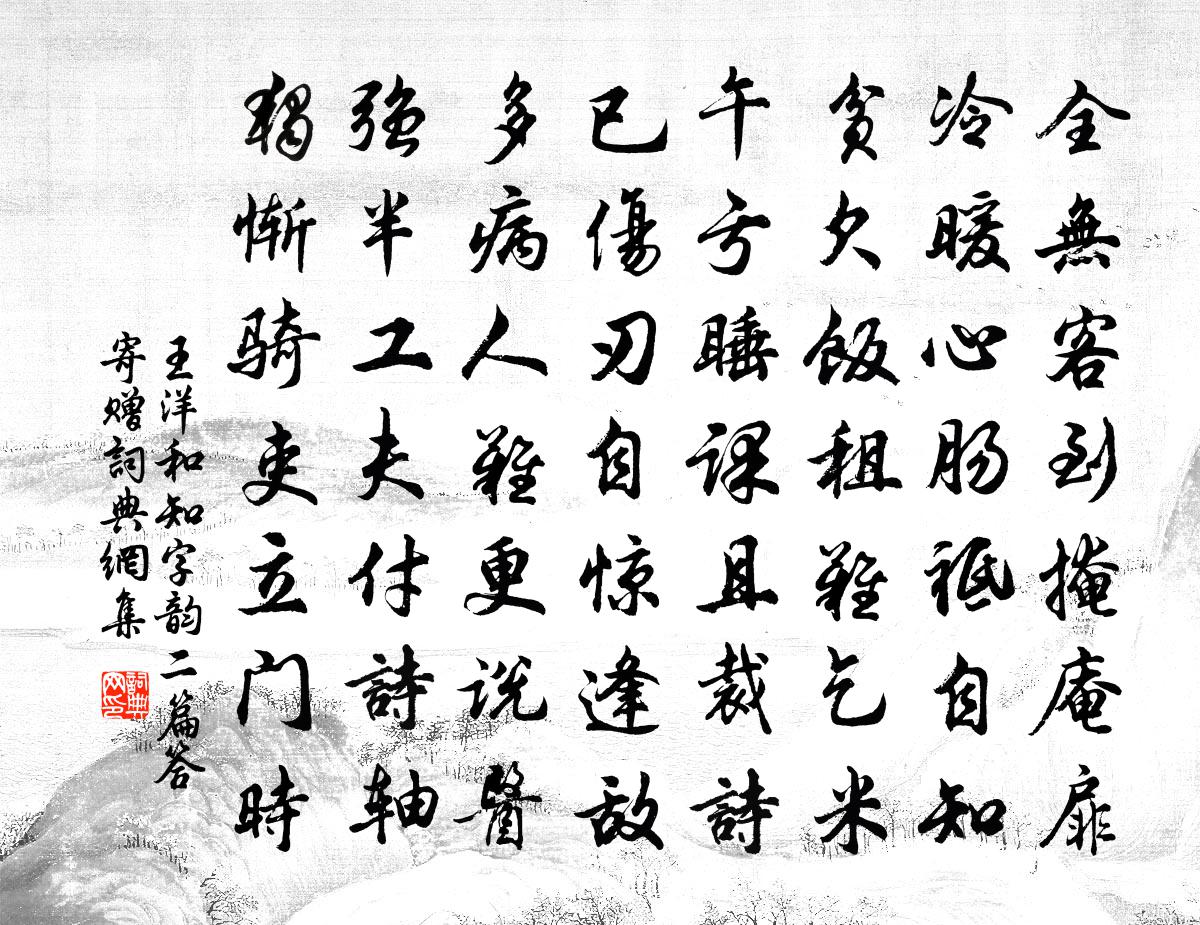 全無客到掩庵扉
冷暖心腸祗自知
貧欠飯租難乞米
午亏睡課且裁詩
已傷刃自惊逢敌
多病人難更説醫
强半工夫付詩轴
獨惭骑吏立门時
王洋和知字韵二篇答
寄赠詞典網集
詞典网印